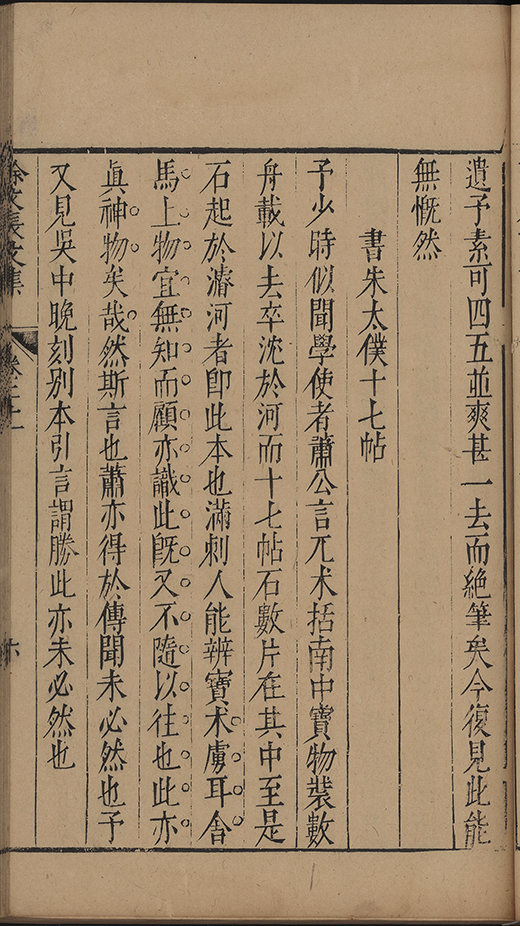 遺予素可四五並爽甚一去而絕筆矣今復見此能
無慨然
書朱太僕十七帖
予少時似聞學使者蕭公言兀朮括南中寶物裝數
舟載以去卒沈於河而十七帖石數片在其中至是
石起於濬河者卽此本也滿刺人能辨寶朮虜耳舍
馬上物宜無知而顧亦識此旣又不隨以往也此亦
眞神物矣哉然斯言也蕭亦得於傳聞未必然也予
又見吳中晚刻別本引言謂勝此亦未必然也
徐文長文集
卷二十一
六